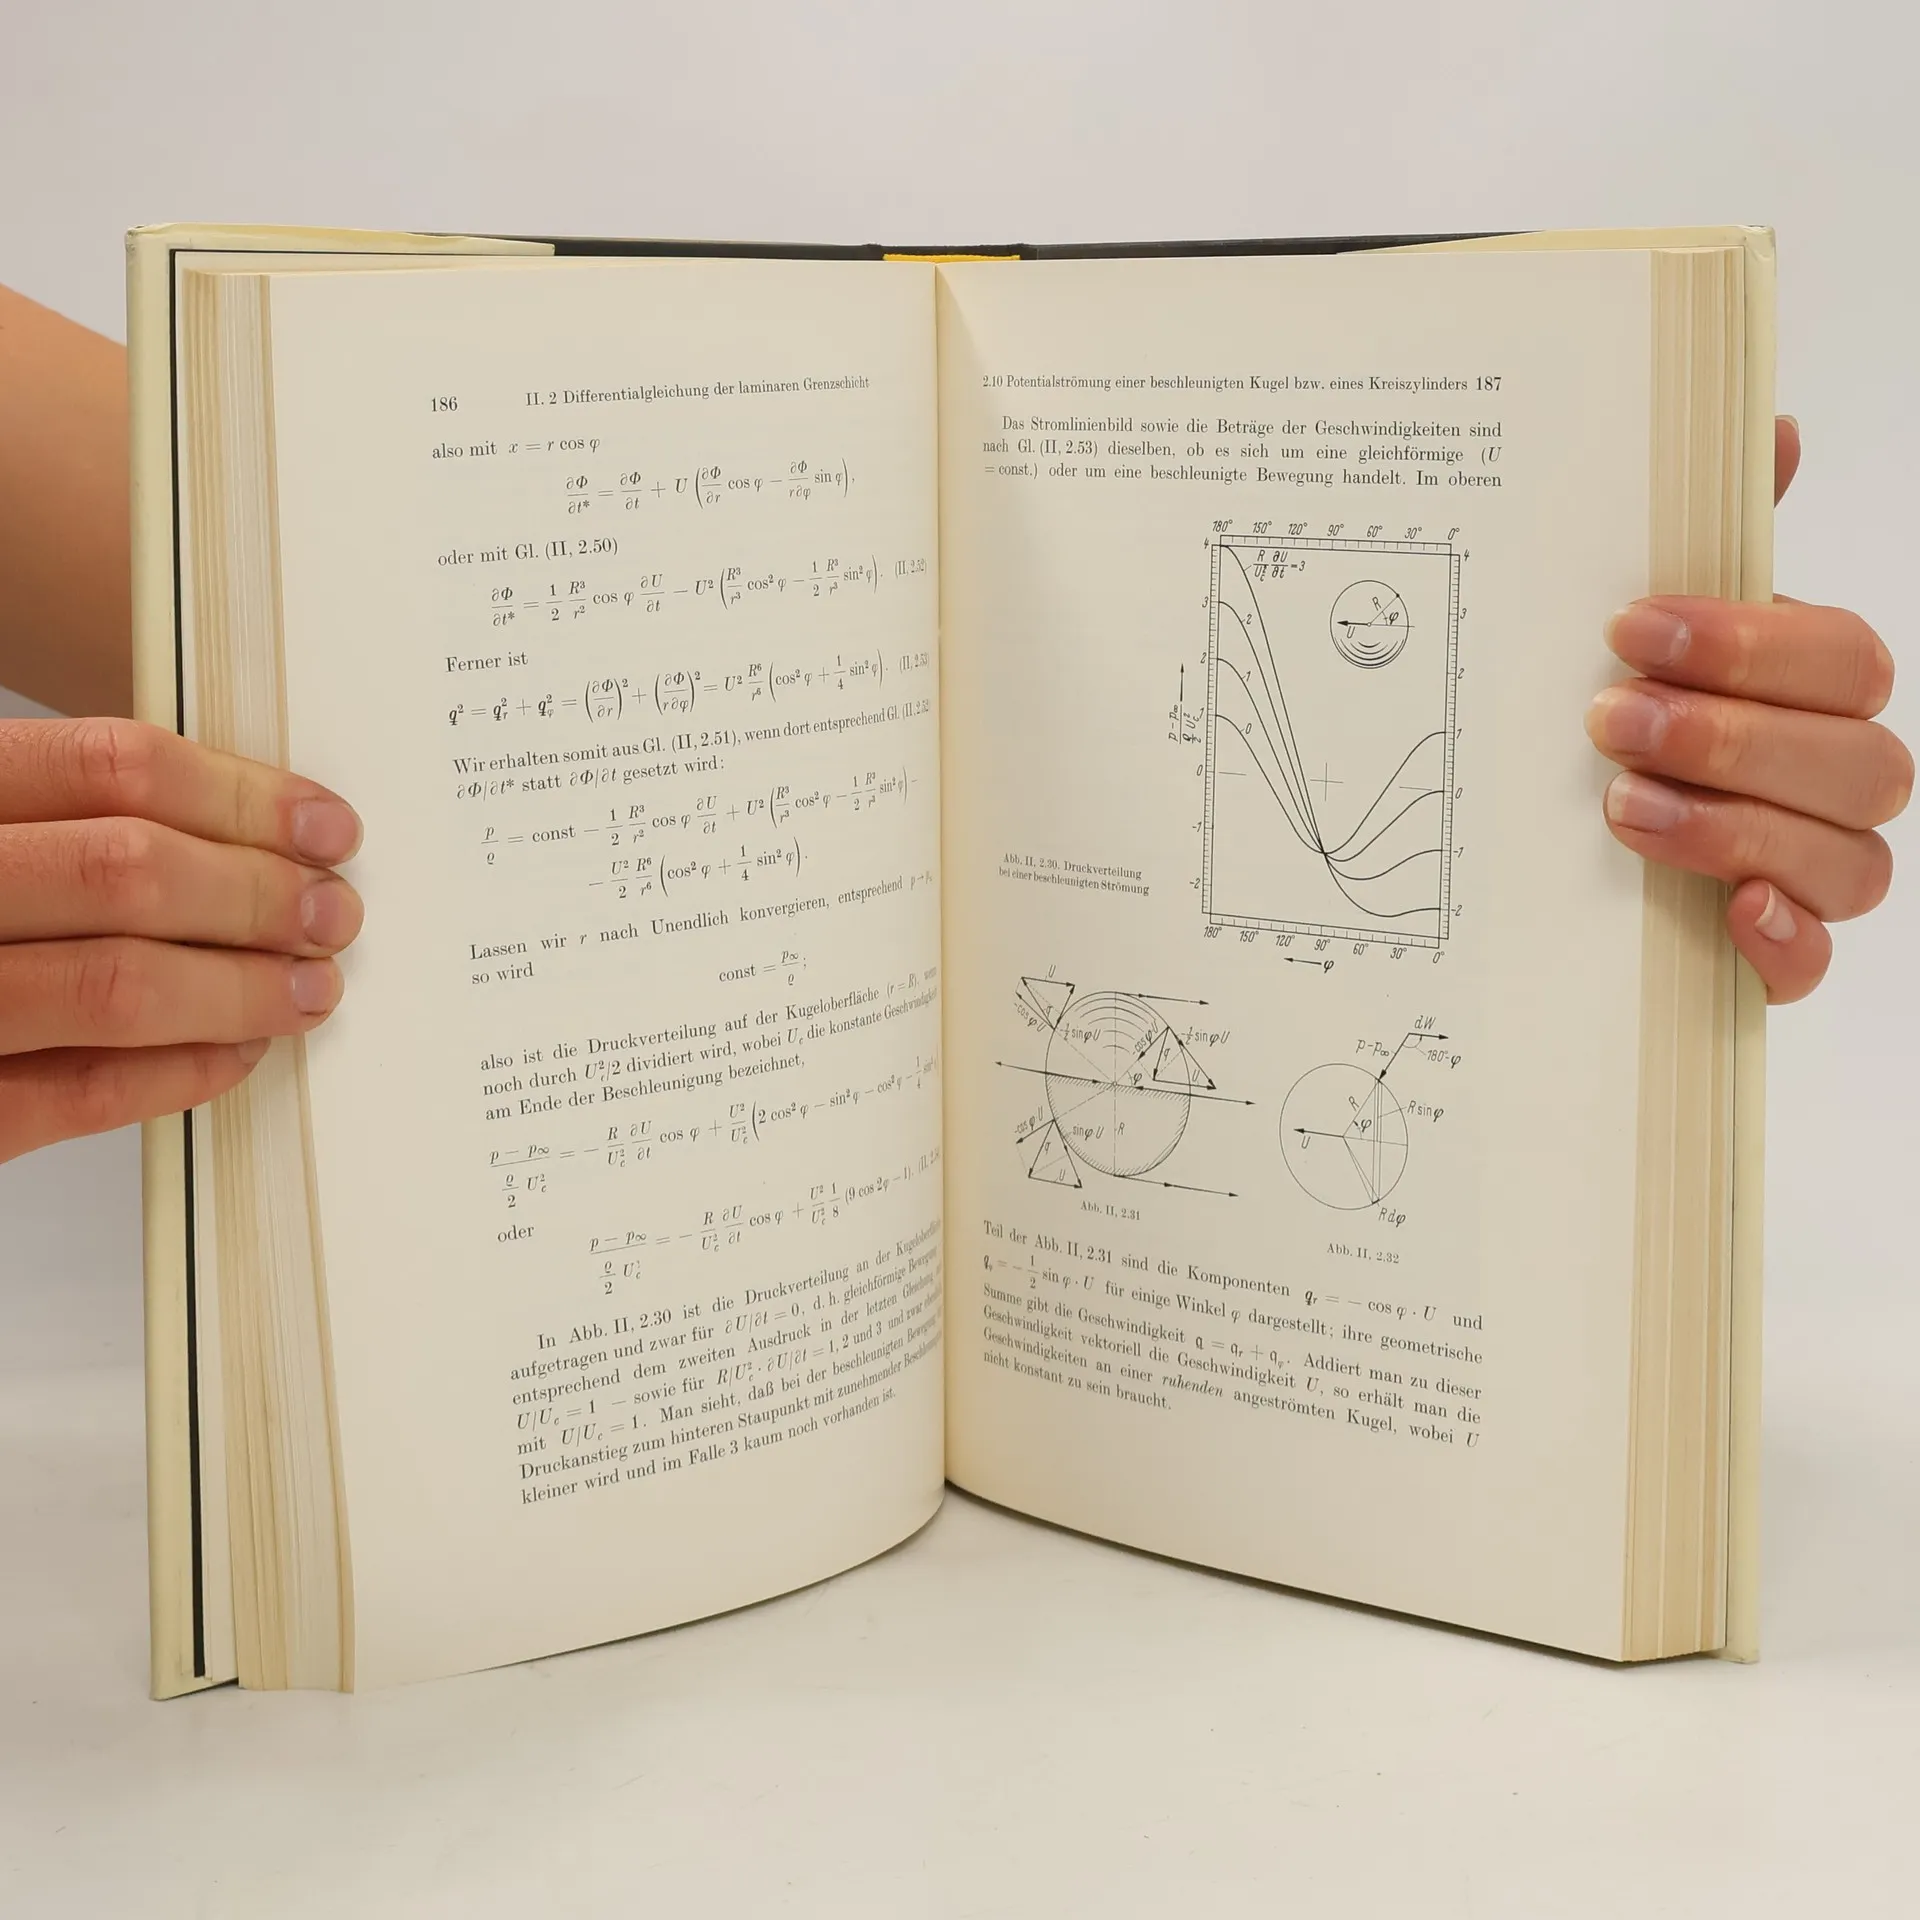 186 II. 2 Differentialgleichung der laminaren Grenzschicht
also mit x = r cos φ
∂Φ/∂t* = ∂Φ/∂t + U (∂Φ/∂r cos φ − ∂Φ/r∂φ sin φ),
oder mit Gl. (II, 2.50)
∂Φ/∂t* = 1/2 R³/r² cos φ ∂U/∂t − U² (R³/r³ cos² φ − 1/2 R³/r³ sin² φ). (II, 2.52)
Ferner ist
q² = q_r² + q_φ² = (∂Φ/∂r)² + (∂Φ/r∂φ)² = U² R⁶/r⁶ (cos² φ + 1/4 sin² φ). (II, 2.53)
Wir erhalten somit aus Gl. (II, 2.51), wenn dort entsprechend Gl. (II, 2.52)
∂Φ/∂t* statt ∂Φ/∂t gesetzt wird:
p/ϱ = const − 1/2 R³/r² cos φ ∂U/∂t + U² (R³/r³ cos² φ − 1/2 R³/r³ sin² φ) −
− U²/2 R⁶/r⁶ (cos² φ + 1/4 sin² φ).
Lassen wir r nach Unendlich konvergieren, entsprechend p → p∞
so wird
const = p∞/ϱ;
also ist die Druckverteilung auf der Kugeloberfläche (r = R), wenn
noch durch U_c²/2 dividiert wird, wobei U_c die konstante Geschwindigkeit
am Ende der Beschleunigung bezeichnet,
(p − p∞)/(ϱ/2 U_c²) = − R/U_c² ∂U/∂t cos φ + U²/U_c² (2 cos² φ − sin² φ − cos² φ − 1/4 sin² φ)
oder
(p − p∞)/(ϱ/2 U_c²) = − R/U_c² ∂U/∂t cos φ + U²/U_c² 1/8 (9 cos 2φ − 1). (II, 2.54)
In Abb. II, 2.30 ist die Druckverteilung an der Kugeloberfläche
aufgetragen und zwar für ∂U/∂t = 0, d. h. gleichförmige Bewegung
entsprechend dem zweiten Ausdruck in der letzten Gleichung
U/U_c = 1 — sowie für R/U_c² · ∂U/∂t = 1, 2 und 3 und zwar ebenfalls
mit U/U_c = 1. Man sieht, daß bei der beschleunigten Bewegung
Druckanstieg zum hinteren Staupunkt mit zunehmender Beschleunigung
kleiner wird und im Falle 3 kaum noch vorhanden ist.
2.10 Potentialströmung einer beschleunigten Kugel bzw. eines Kreiszylinders 187
Das Stromlinienbild sowie die Beträge der Geschwindigkeiten sind
nach Gl. (II, 2.53) dieselben, ob es sich um eine gleichförmige (U
= const.) oder um eine beschleunigte Bewegung handelt. Im oberen
180° 150° 120° 90° 60° 30° 0°
R/U_c² ∂U/∂t = 3
2
1
0
R
φ
U
4
3
2
1
0
-1
-2
4
3
2
1
0
-1
-2
(p − p∞)/(ϱ/2 U_c²)
180° 150° 120° 90° 60° 30° 0°
φ
Abb. II, 2.30. Druckverteilung
bei einer beschleunigten Strömung
U
-cosφU
q
-½sinφU
-cosφU
-½sinφU
q
U
φ
-cosφ·U
q
U
sinφU
R
Abb. II, 2.31
dW
p-p∞
180°-φ
R
φ
U
R sinφ
Rdφ
Abb. II, 2.32
Teil der Abb. II, 2.31 sind die Komponenten q_r = − cos φ · U und
q_φ = − 1/2 sin φ · U für einige Winkel φ dargestellt; ihre geometrische
Summe gibt die Geschwindigkeit q = q_r + q_φ. Addiert man zu dieser
Geschwindigkeit vektoriell die Geschwindigkeit U, so erhält man die
Geschwindigkeiten an einer ruhenden angeströmten Kugel, wobei U
nicht konstant zu sein braucht.